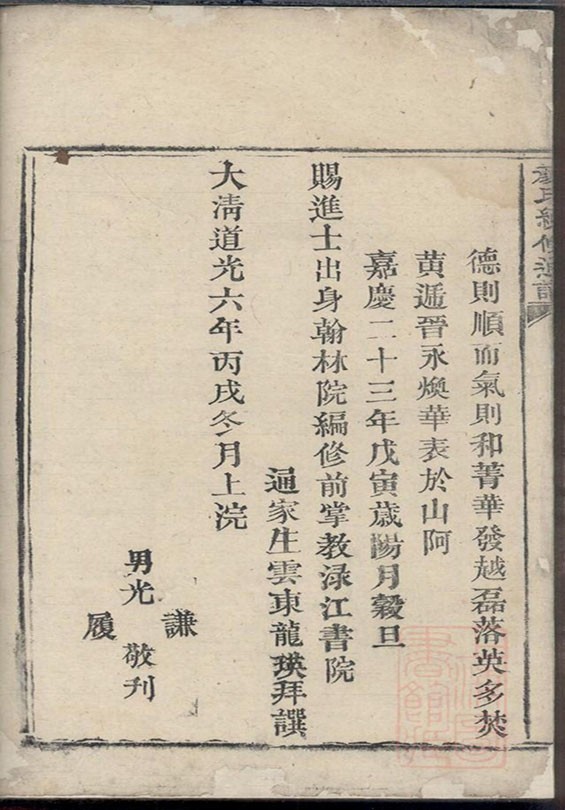 氏續修通譜
德則順而氣則和菁華發越磊落英多焚
黄遞晉永煥華表於山阿
嘉慶二十三年戊寅歲陽月穀旦
賜進士出身翰林院編修前掌教渌江書院
通家生雲東龍瑛拜譔
大淸道光六年丙戌冬月上浣
男光謙履敬刋